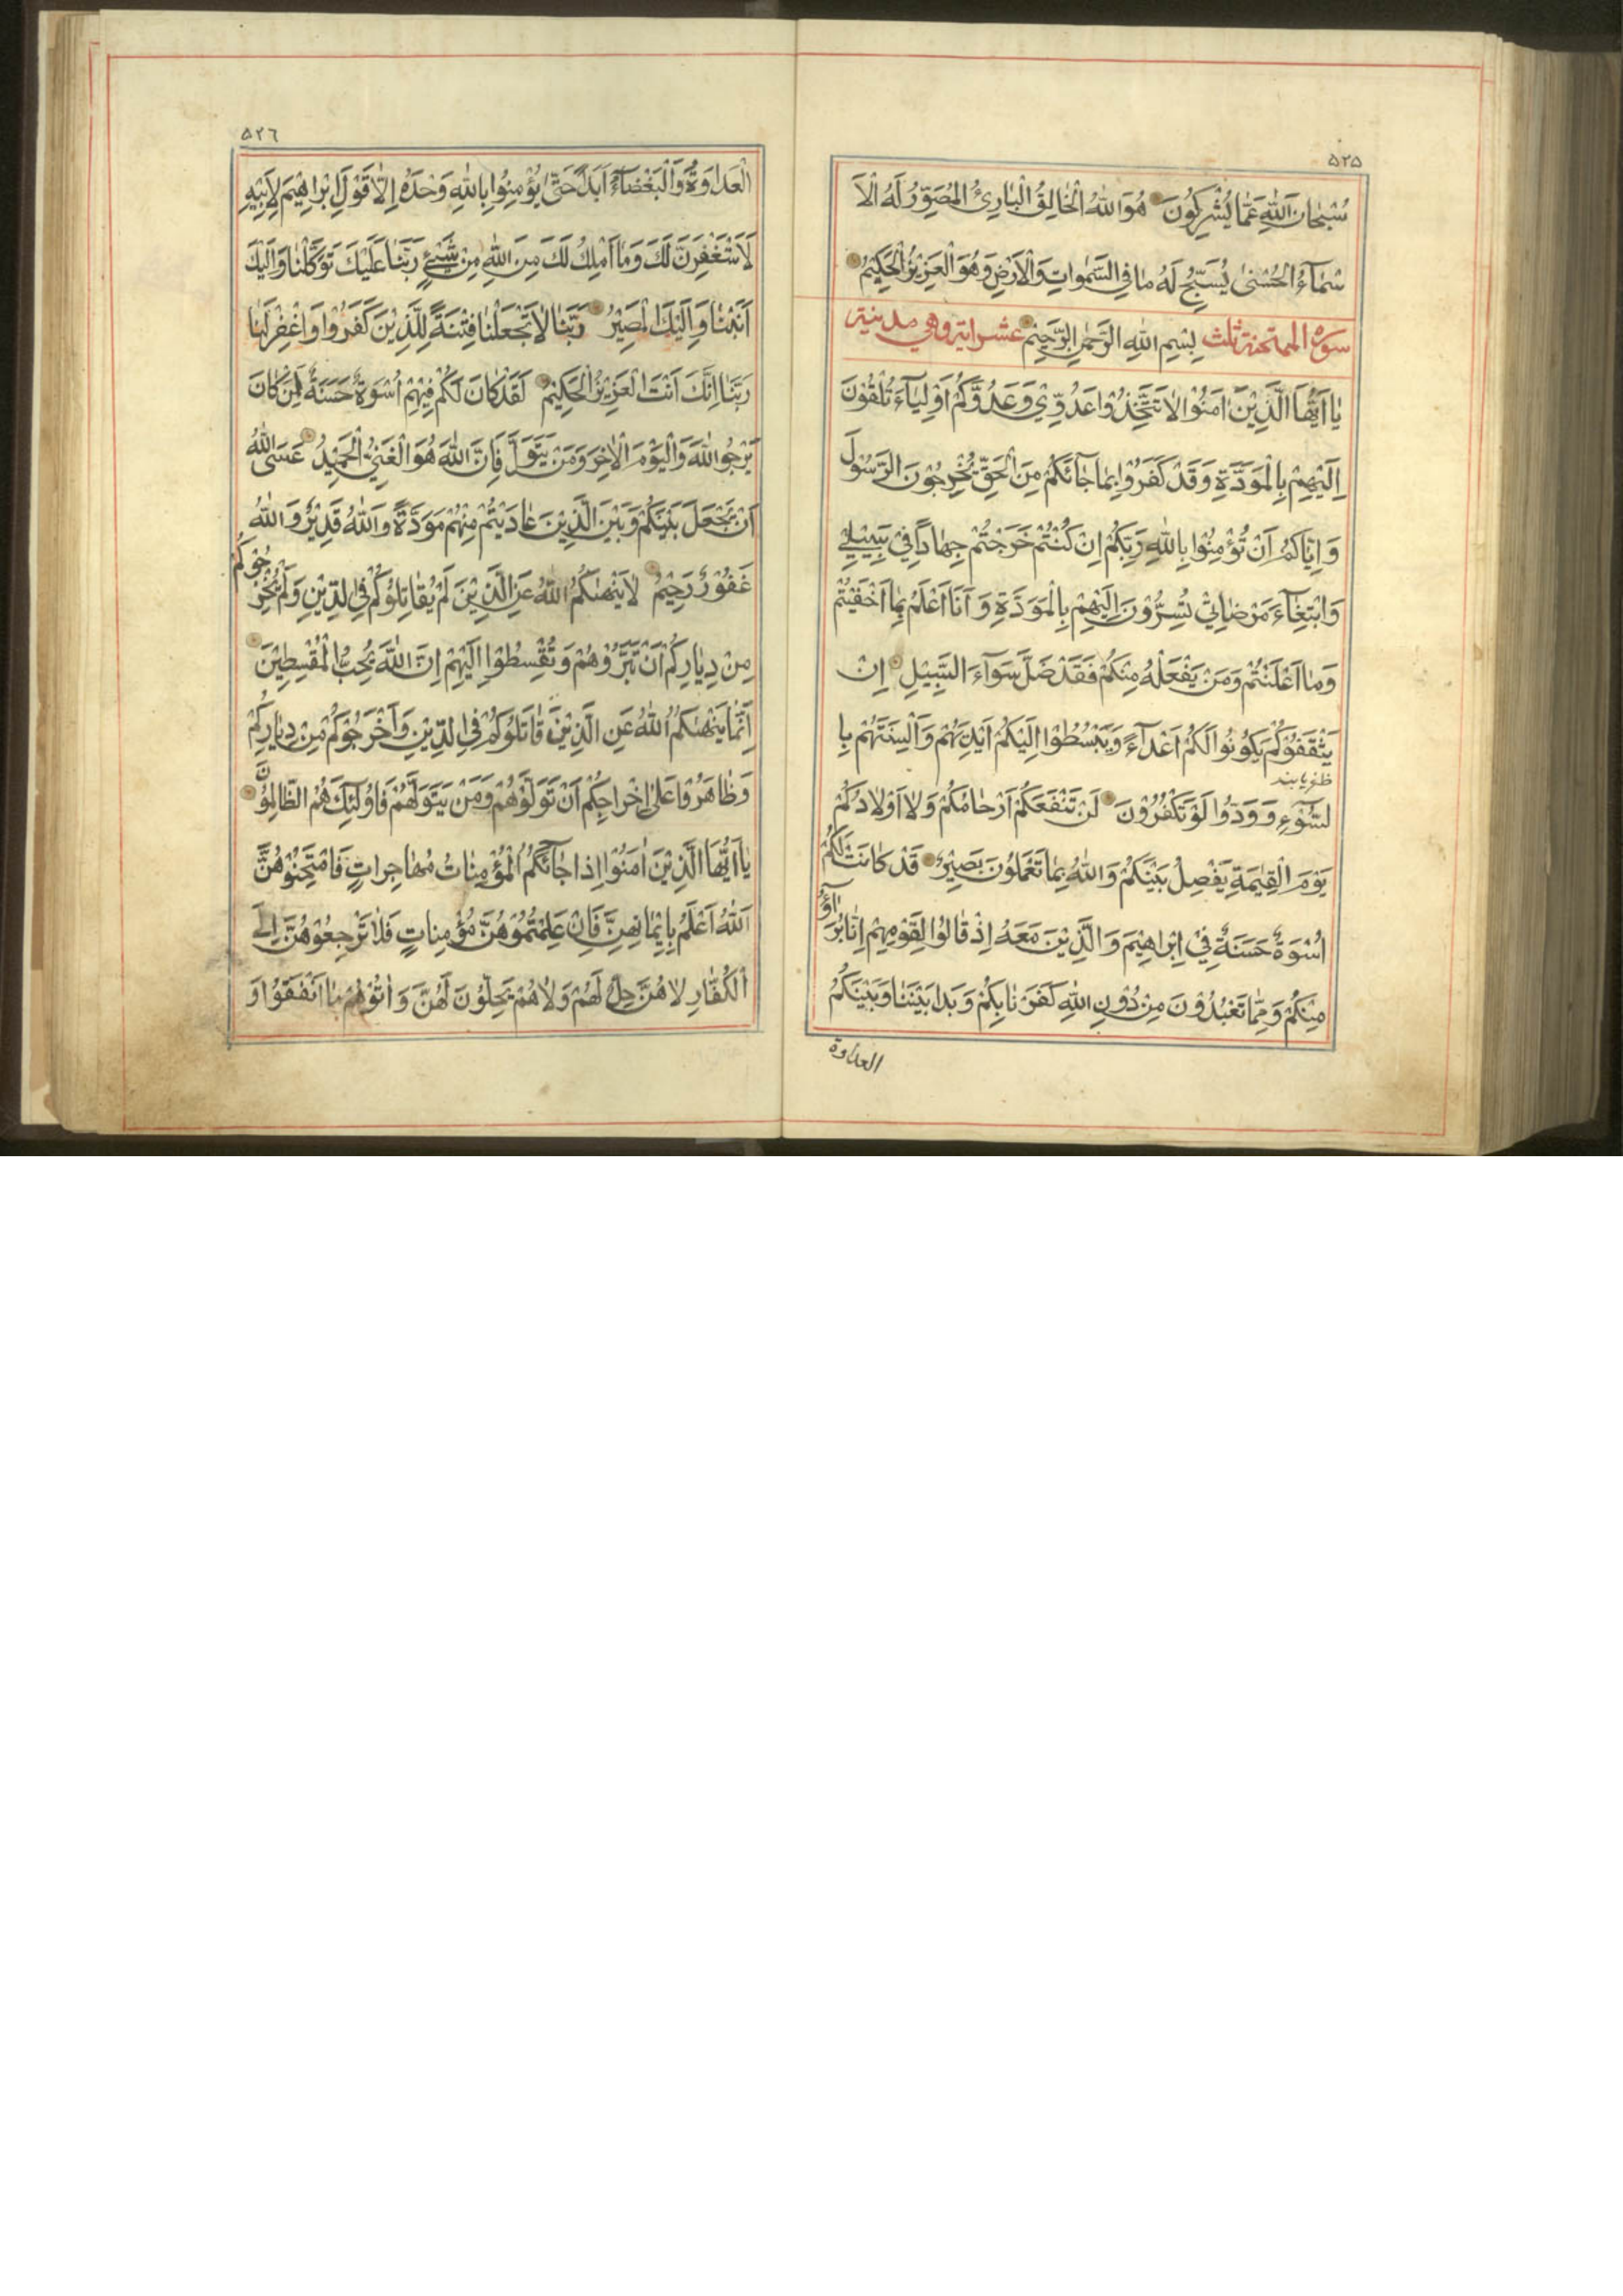 ۵۲۵
سُبْحَانَ اللّٰهِ عَمَّا يُشْرِكُونَ هُوَ اللّٰهُ الْخَالِقُ الْبَارِئُ الْمُصَوِّرُ لَهُ الْاَ
سْمَآءُ الْحُسْنٰى يُسَبِّحُ لَهُ مَا فِي السَّمٰوَاتِ وَالْاَرْضِ وَهُوَ الْعَزِيْزُ الْحَكِيْمُ
سورة الممتحنة ثلث بِسْمِ اللّٰهِ الرَّحْمٰنِ الرَّحِيْمِ عشر اية وهي مدنية
يَا اَيُّهَا الَّذِيْنَ اٰمَنُوْا لَا تَتَّخِذُوْا عَدُوِّيْ وَعَدُوَّكُمْ اَوْلِيَآءَ تُلْقُوْنَ
اِلَيْهِمْ بِالْمَوَدَّةِ وَقَدْ كَفَرُوْا بِمَا جَآئَكُمْ مِنَ الْحَقِّ يُخْرِجُوْنَ الرَّسُوْلَ
وَاِيَّاكُمْ اَنْ تُؤْمِنُوْا بِاللّٰهِ رَبِّكُمْ اِنْ كُنْتُمْ خَرَجْتُمْ جِهَادًا فِيْ سَبِيْلِيْ
وَابْتِغَآءَ مَرْضَاتِيْ تُسِرُّوْنَ اِلَيْهِمْ بِالْمَوَدَّةِ وَ اَنَا اَعْلَمُ بِمَا اَخْفَيْتُمْ
وَمَا اَعْلَنْتُمْ وَمَنْ يَفْعَلْهُ مِنْكُمْ فَقَدْ ضَلَّ سَوَآءَ السَّبِيْلِ اِنْ
يَثْقَفُوْكُمْ يَكُوْنُوْا لَكُمْ اَعْدَآءً وَيَبْسُطُوْا اِلَيْكُمْ اَيْدِيَهُمْ وَاَلْسِنَتَهُمْ بِا
ظفر یابند
لسُّوْءِ وَ وَدُّوْا لَوْ تَكْفُرُوْنَ لَنْ تَنْفَعَكُمْ اَرْحَامُكُمْ وَلَا اَوْلَادُكُمْ
يَوْمَ الْقِيٰمَةِ يَفْصِلُ بَيْنَكُمْ وَاللّٰهُ بِمَا تَعْمَلُوْنَ بَصِيْرٌ قَدْ كَانَتْ لَكُمْ
اُسْوَةٌ حَسَنَةٌ فِيْ اِبْرَاهِيْمَ وَالَّذِيْنَ مَعَهُ اِذْ قَالُوْا لِقَوْمِهِمْ اِنَّا بُرَآؤُا
مِنْكُمْ وَمِمَّا تَعْبُدُوْنَ مِنْ دُوْنِ اللّٰهِ كَفَرْنَا بِكُمْ وَبَدَا بَيْنَنَا وَبَيْنَكُمُ
العداوة
۵۲٦
الْعَدَاوَةُ وَالْبَغْضَآءُ اَبَدًا حَتّٰى يُؤْمِنُوْا بِاللّٰهِ وَحْدَهُ اِلَّا قَوْلَ اِبْرَاهِيْمَ لِاَبِيْهِ
لَاَسْتَغْفِرَنَّ لَكَ وَمَا اَمْلِكُ لَكَ مِنَ اللّٰهِ مِنْ شَيْءٍ رَبَّنَا عَلَيْكَ تَوَكَّلْنَا وَاِلَيْكَ
اَنَبْنَا وَاِلَيْكَ الْمَصِيْرُ رَبَّنَا لَا تَجْعَلْنَا فِتْنَةً لِلَّذِيْنَ كَفَرُوْا وَاغْفِرْ لَنَا
رَبَّنَا اِنَّكَ اَنْتَ الْعَزِيْزُ الْحَكِيْمُ لَقَدْ كَانَ لَكُمْ فِيْهِمْ اُسْوَةٌ حَسَنَةٌ لِمَنْ كَانَ
يَرْجُوا اللّٰهَ وَالْيَوْمَ الْاٰخِرَ وَمَنْ يَتَوَلَّ فَاِنَّ اللّٰهَ هُوَ الْغَنِيُّ الْحَمِيْدُ عَسَى اللّٰهُ
اَنْ يَجْعَلَ بَيْنَكُمْ وَبَيْنَ الَّذِيْنَ عَادَيْتُمْ مِنْهُمْ مَوَدَّةً وَاللّٰهُ قَدِيْرٌ وَاللّٰهُ
غَفُوْرٌ رَحِيْمٌ لَا يَنْهٰىكُمُ اللّٰهُ عَنِ الَّذِيْنَ لَمْ يُقَاتِلُوْكُمْ فِي الدِّيْنِ وَلَمْ يُخْرِجُوْكُمْ
مِنْ دِيَارِكُمْ اَنْ تَبَرُّوْهُمْ وَتُقْسِطُوْا اِلَيْهِمْ اِنَّ اللّٰهَ يُحِبُّ الْمُقْسِطِيْنَ
اِنَّمَا يَنْهٰىكُمُ اللّٰهُ عَنِ الَّذِيْنَ قَاتَلُوْكُمْ فِي الدِّيْنِ وَاَخْرَجُوْكُمْ مِنْ دِيَارِكُمْ
وَظَاهَرُوْا عَلٰى اِخْرَاجِكُمْ اَنْ تَوَلَّوْهُمْ وَمَنْ يَتَوَلَّهُمْ فَاُولٰئِكَ هُمُ الظَّالِمُوْنَ
يَا اَيُّهَا الَّذِيْنَ اٰمَنُوْا اِذَا جَآئَكُمُ الْمُؤْمِنَاتُ مُهَاجِرَاتٍ فَامْتَحِنُوْهُنَّ
اَللّٰهُ اَعْلَمُ بِاِيْمَانِهِنَّ فَاِنْ عَلِمْتُمُوْهُنَّ مُؤْمِنَاتٍ فَلَا تَرْجِعُوْهُنَّ اِلَى
الْكُفَّارِ لَا هُنَّ حِلٌّ لَهُمْ وَلَا هُمْ يَحِلُّوْنَ لَهُنَّ وَ اٰتُوْهُمْ مَا اَنْفَقُوْا وَ